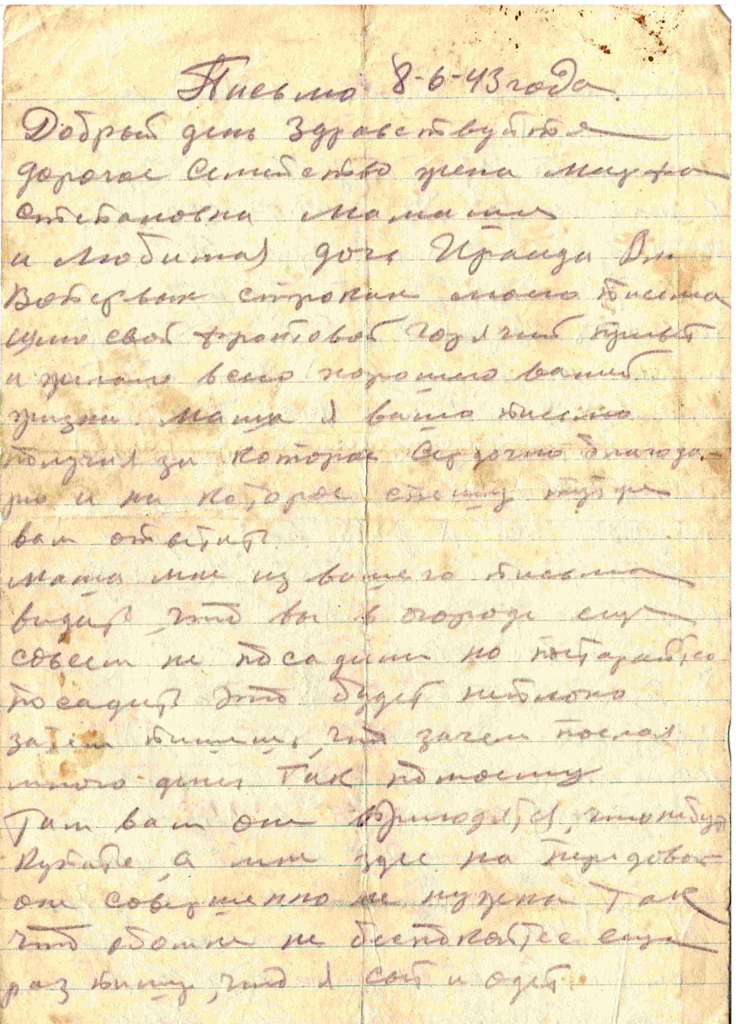 Письмо 8-6-43 года.
Добрый день Здравствуйтя
дорогое Семейство жена Марфа
степановна Мамаша
и Любимая дочь Ираида Вл
Воперьвых строках моево писма
шлю свой фронтовой горячий привет
и желаю всево хорошево вашей
жизни. Маша я ваше писмо
получил за которое Сердечно благода-
рю и на которое спешу тут же
вам ответить
Маша мне из вашего писма
видать, что вы в огороде еще
совсем не посадили но постарайтес
посадить это будет неплохо
затем пишешь, что зачем послал
много денег Так помоему
Там вам они пригодятся, чтонибуд
купите, а мне здес на передовой
они совершенно не нужны Так
что обомне не беспокойтес еще
раз пишу, что я сыт и одет.